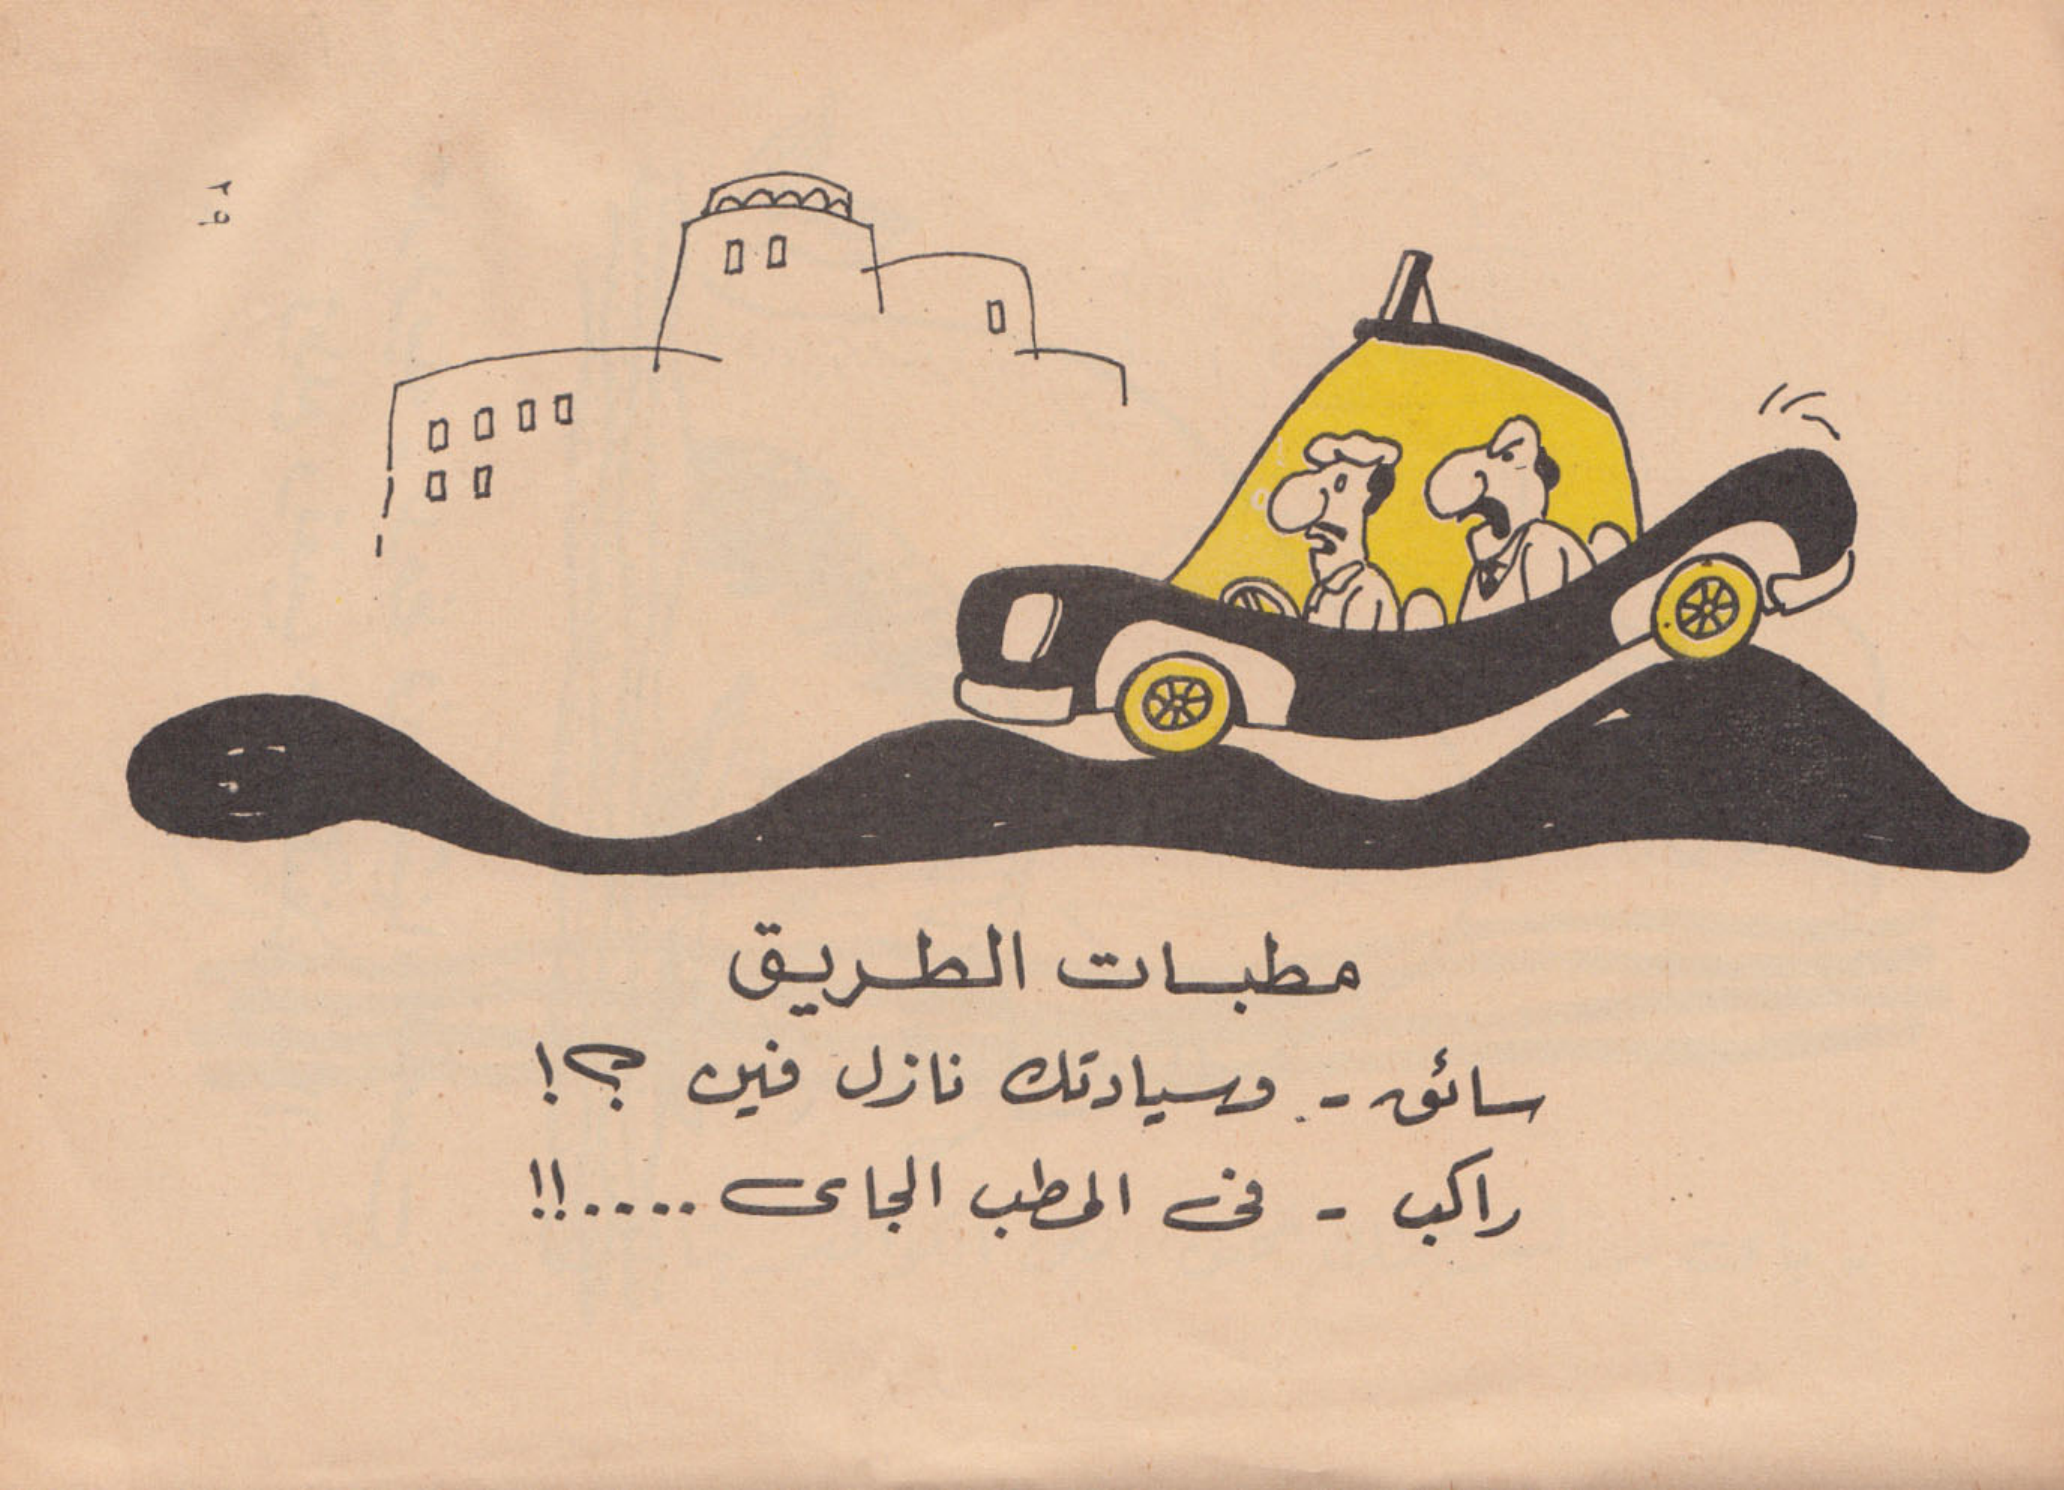 ٢٩
مطبات الطريق
سائق - وسيادتك نازل فين ؟!
راكب - فى المطب الجاى ....!!